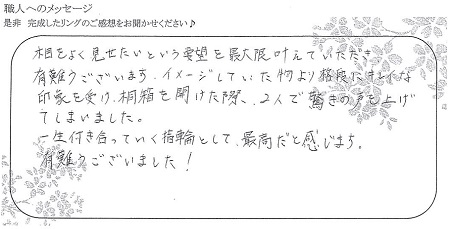 職人へのメッセージ
是非 完成したリングのご感想をお聞かせください♪
木目をよく見せたいという要望を最大限叶えていただき
有難うございます。イメージしていた物より格段にきれいな
印象を受け、桐箱を開けた際、2人で驚きの声を上げ
てしまいました。
一生付き合っていく指輪として、最高だと感じます。
有難うございました!